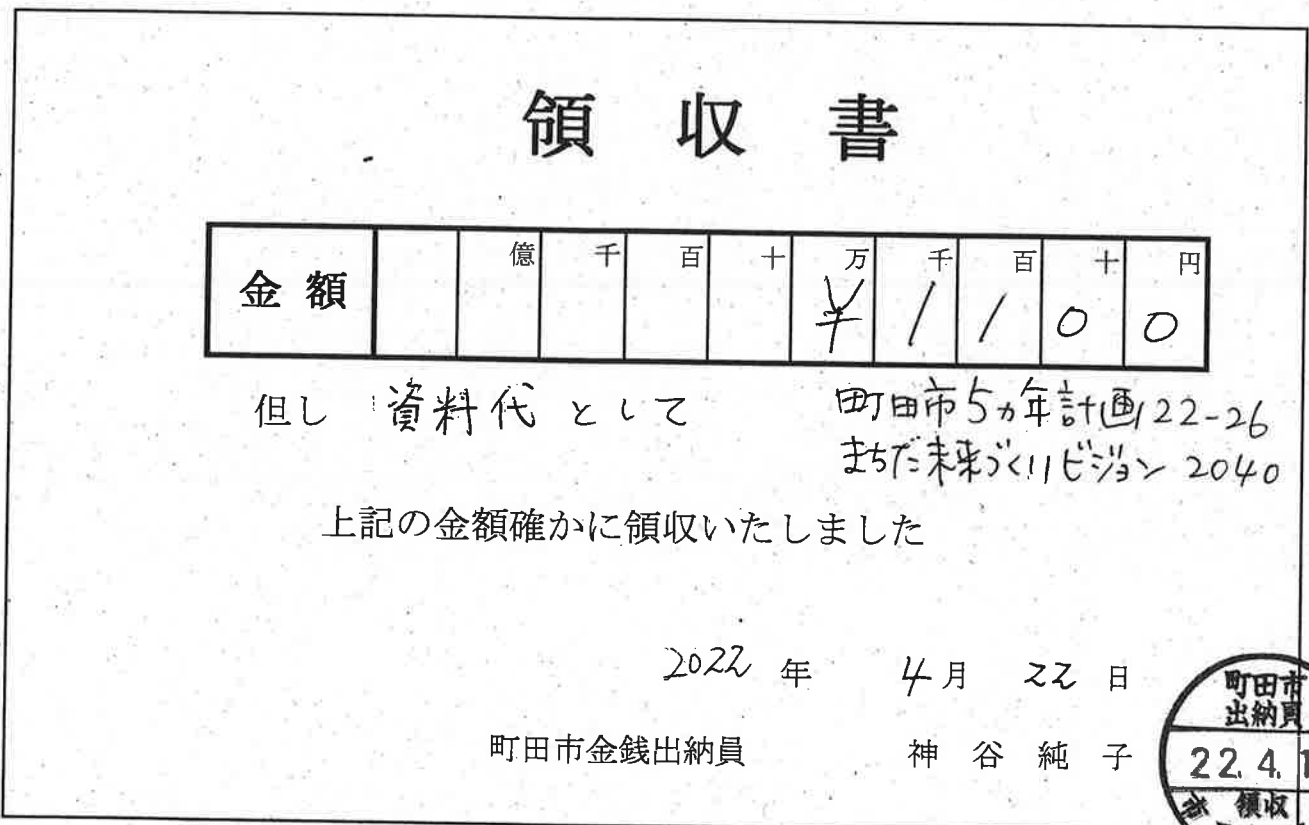 領収書
金額 億 千 百 十 万 千 百 十 円
¥ 1 1 0 0
但し 資料代 として
町田市5ヵ年計画22-26
まちだ未来づくりビジョン 2040
上記の金額確かに領収いたしました
2022 年 4月 22 日
町田市金銭出納員 神谷純子
町田市
出納員
22.4.1
領収